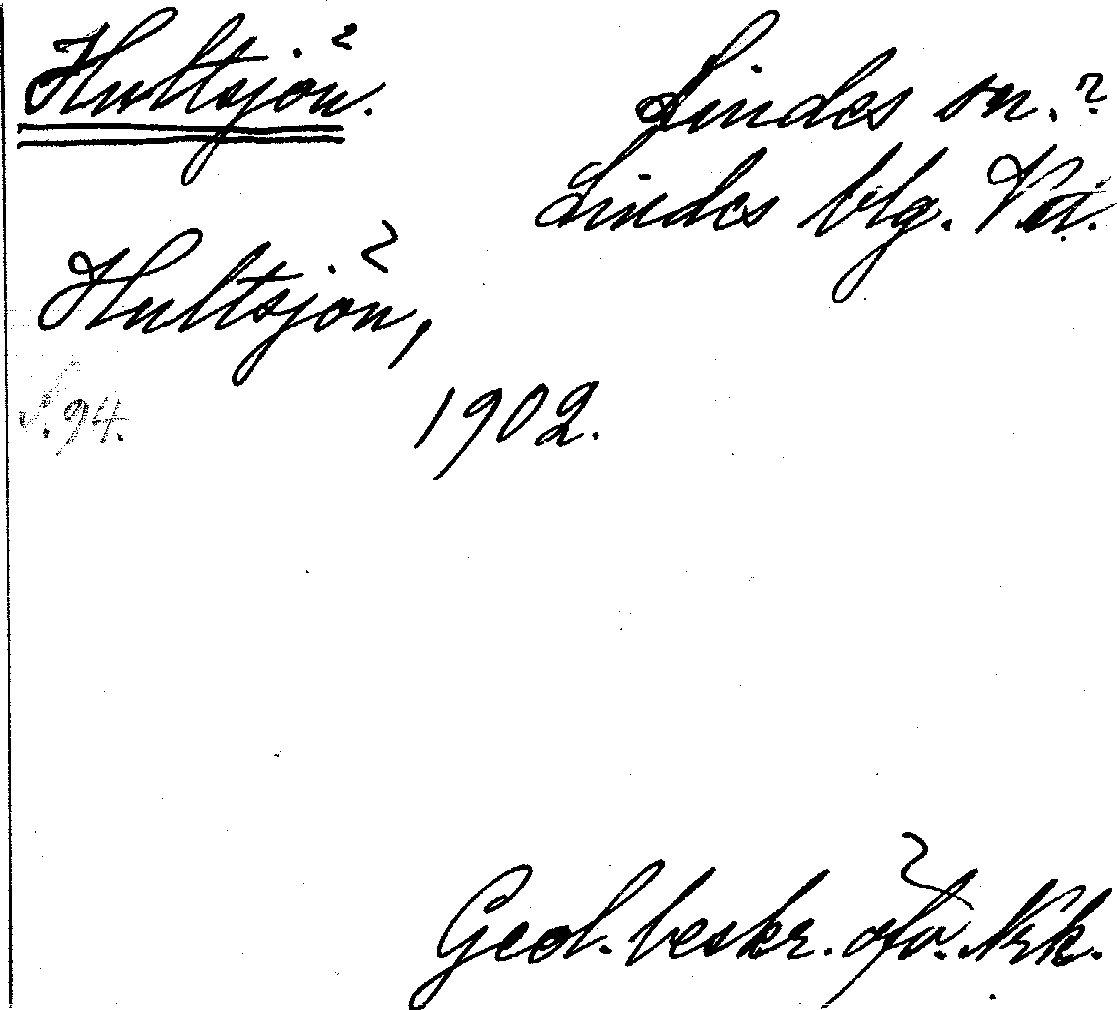 Hultsjön.
Lindes sn.?
Lindes blg. Vst.
Hultsjön,
S. 94.
1902.
Geol. beskr. öfv. Nrk.